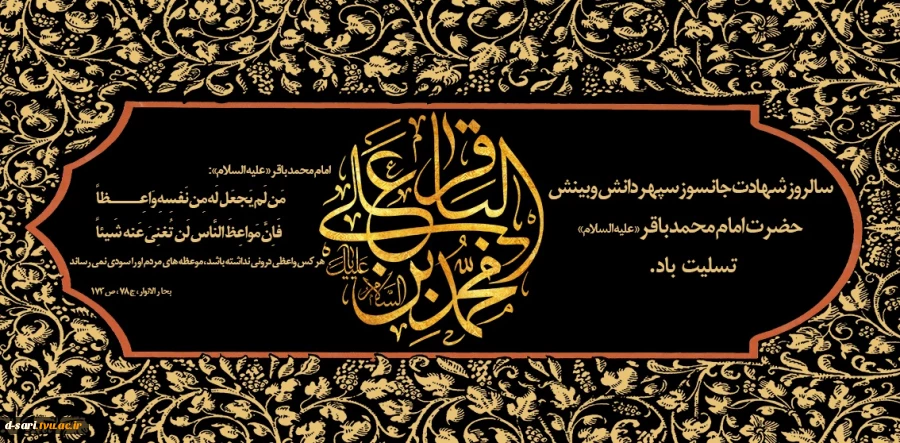 سالروز شهادت جانسوز سپهر دانش و بینش
حضرت امام محمد باقر «علیه السلام»
تسلیت باد.
محمد بن علی الباقر
علیه السلام
امام محمد باقر «علیه السلام»:
مَن لَم یَجعَل لَه مِن نَفسِهِ واعِــــظاً
فَانَّ مَواعِظَ النَّاس لَن تُغنیَ عَنه شَیئاً
هر کس واعظی درونی نداشته باشد، موعظه های مردم او را سودی نمی رساند
بحار الانوار، ج ۷۸، ص ۱۷۳
d-sari.tvu.ac.ir